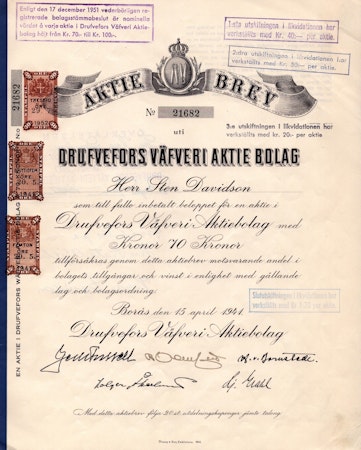 Enligt den 17 december 1951 vederbörligen re-
gistrerade bolagsstämmobeslut är nominella
värdet å varje aktie i Drufvefors Väfveri Aktie-
bolag höjt från Kr. 70/- till Kr. 100:-
1:sta utskiftningen i likvidationen har
verkställts med Kr. 40:- per aktie.
2:dra utskiftningen i likvidationen har
verkställts med Kr. 30:- per aktie.
AKTIE BREV
No 21682
21682
uti
3:e utskiftningen i likvidationen har
verkställts med kr. 20:- per aktie
DRUFVEFORS VÄFVERI AKTIE BOLAG
Herr Sten Davidson
som till fullo inbetalt beloppet för en aktie i
Drufvefors Väfveri Aktiebolag med
Kronor 70 Kronor
tillförsäkras genom detta aktiebrev motsvarande andel i
bolagets tillgångar och vinst i enlighet med gällande
lag och bolagsordning.
Slututskiftningen i likvidationen har
Borås den 15 april 1941
Drufvefors Väfveri Aktiebolag
Med detta aktiebrev följa 20 st. utdelningskuponger jämte talong.
EN AKTIE I DRUFVEFORS VÄFVERI AKTIEBOLAG